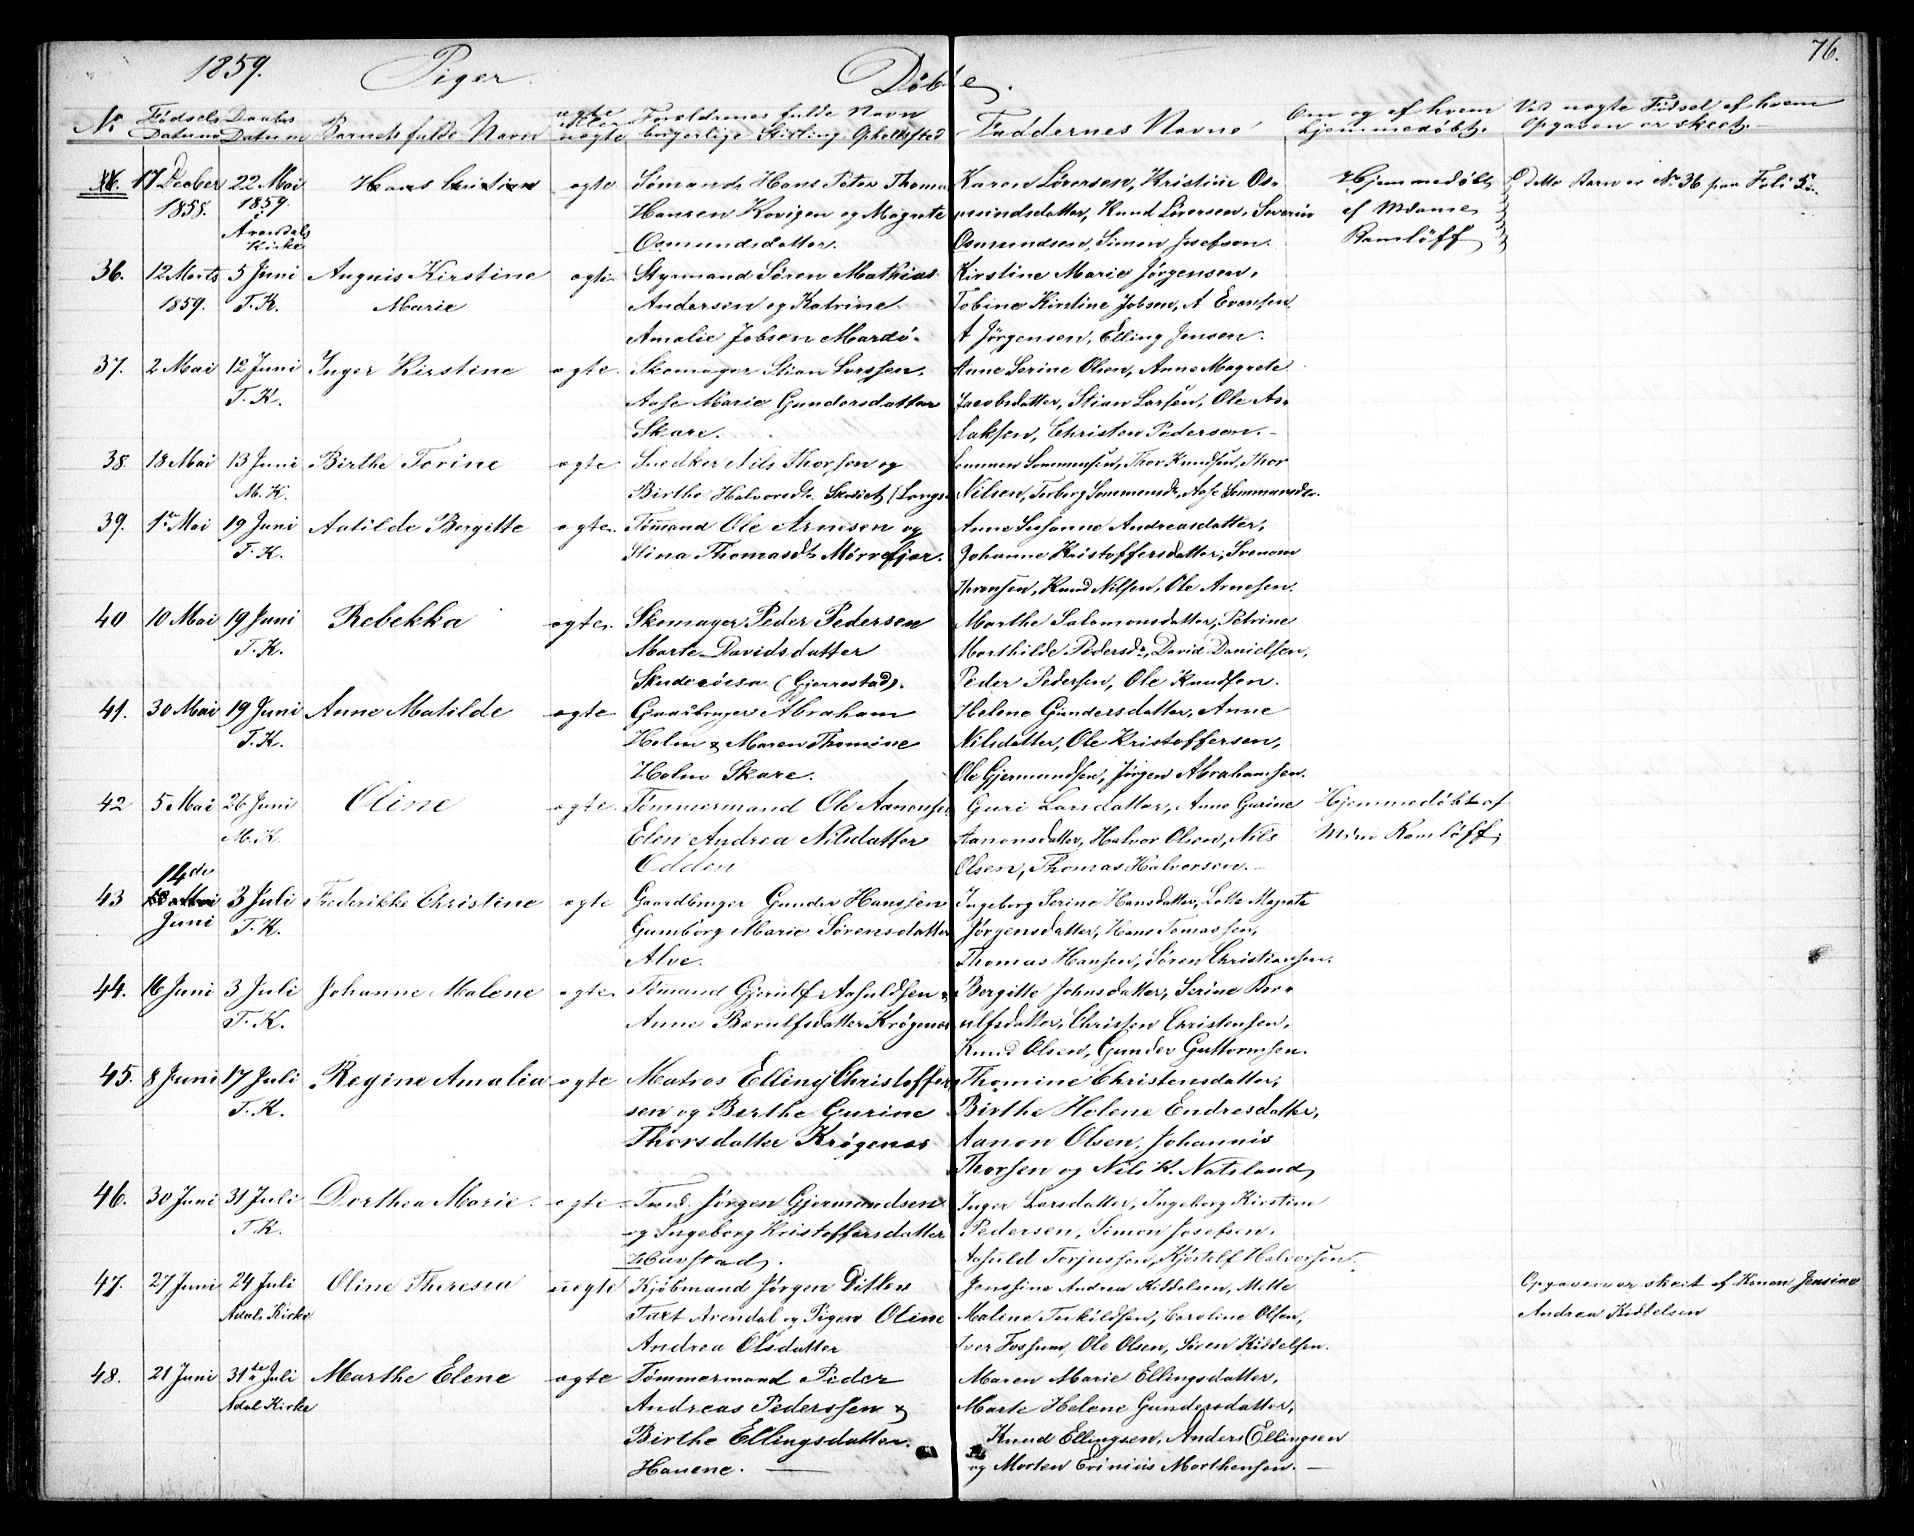 1859. Piger. Døbte. 76.
No Fødsels Datum Daabs Datum Barnets fulde Navn ægte eller uægte Forældrenes fulde Navn borgerlige Stilling Opholdssted Faddernes Navne Om og af hvem hjemmedøbt. Ved uægte Fødsel af hvem Opgaven er skeet.
17 Decber 22 Mai Hans Cristian ægte Sømand Hans Peter Thomas Karen Sørensen, Kristine Os- Hjemmedøbt Dette Barn er No 36 paa Foli 5
1858. 1859. Hansen Kovigen og Magrete mundsdatter, Knud Sørensen, Severin af Madame
Arendals Kirke Osmundsdatter. Osmundsen, Simon Josefsen. Ramløff
36. 12 Marts 5 Juni Angnis Kirstine ægte Styrmand Søren Mathias Kirstine Marie Jørgensen,
1859. T. K. Marie Andersen og Katrine Tobine Kirstine Jobsen, A Evensen
Amalie Jobsen Mardø. A Jørgensen, Elling Jensen.
37. 2 Mai 12 Juni Inger Kirstine ægte Skomager Stian Larssen, Anne Serine Olsen, Anne Magrete
T. K. Aase Marie Gundersdatter Jacobsdatter, Stian Larsen, Ole As-
Skare. laksen, Christen Pedersen.
38. 18 Mai 13 Juni Birthe Torine ægte Snedker Nils Thorsen og Sommen Sommensen, Thor Knudsen, Thor
M. K. Birthe Halvorsdt. Nilsen, Torborg Sommensdt, Aase Sommensdt.
39. 1st Mai 19 Juni Matilde Bergitte ægte Tømand Ole Arnesen og Anne Susanne Andreasdatter,
T. K. Stina Thomasdt Mørrefjær. Johanne Kristoffersdatter, Svenom
Knud Nilsen, Ole Arnesen.
40 10 Mai 19 Juni Rebekka ægte Skomager Peder Pedersen Marthe Salomonsdatter, Petrine
T. K. Marte Davidsdatter Marthilde Pedersdt, David Danielsen,
(Gjerrestad). Peder Pedersen, Ole Knudsen.
41. 30 Mai 19 Juni Anne Matilde ægte Gaardbruger Abraham Helene Gundersdatter, Anne
T. K. Holm & Maren Thomine Nilsdatter, Ole Kristoffersen,
Holm Skare. Ole Gjermundsen, Jørgen Abrahamsen.
42 5 Mai 26 Juni Oline ægte Tømmermand Ole Aanonsen Guri Larsdatter, Anne Gurine Hjemmedøbt af
M. K. Elen Andrea Nilsdatter Aanonsdatter, Halvor Olsen, Nils Ramløff
Odden Olsen, Thomas Halvorsen.
14de
43 3 Juli Frederikke Christine ægte Gaardbruger Gunder Hanssen Ingeborg Serine Hansdatter, Lotte Magrete
Juni T. K. Gumborg Marie Sørensdatter Jørgensdatter, Hans Tomassen,
Alve. Thomas Hansen, Søren Christiansen.
44. 16 Juni 3 Juli Johanne Malene ægte Tømand Gjerulf Aasuldsen & Bergitte Johnsdatter, Serine Ber-
T. K. Anne Berulfsdatter Krøgenes ulfsdatter, Christen Christensen,
Knud Olsen, Gunder Guttormsen.
45. 8 Juni 17 Juli Regine Amalia ægte Matros Elling Christoffer- Thomine Christensdatter,
T. K. sen og Berthe Gurine Birthe Helene Endresdatter,
Thorsdatter Krøgenes Aanon Olsen, Johannis
Thorsen og Nils K. Natsland
46. 30 Juni 31 Juli Dorthea Marie ægte Tmd. Jørgen Gjermundsen Inger Larsdatter, Ingeborg Kirstine
T. K. og Ingeborg Kristoffersdatter Pedersen, Simon Josefsen,
Havstad. Aasuld Torjussen, Kjøstelf Halvorsen.
47. 27 Juni 24 Juli Oline Theresea uægte Kjøbmand Jørgen Ditlev Jensine Andrea Kiddelsen, Mette Opgaven er skeit af Konen Jensine
Adals Kirke Arendal og Pigen Oline Maline Terkildsen, Caroline Olsen, Andrea Kiddelsen
Andrea Olsdatter Iver Fossum, Ole Olsen, Søren Kiddelsen.
48. 21 Juni 31te Juli Marthe Elene ægte Tømmermand Peder Maren Marie Ellingsdatter,
Adal Kirke Andreas Pederssen & Marte Helene Gundersdatter,
Birthe Ellingsdatter. Knud Ellingsen, Anders Ellingsen
Havene. og Morten Morthensen.